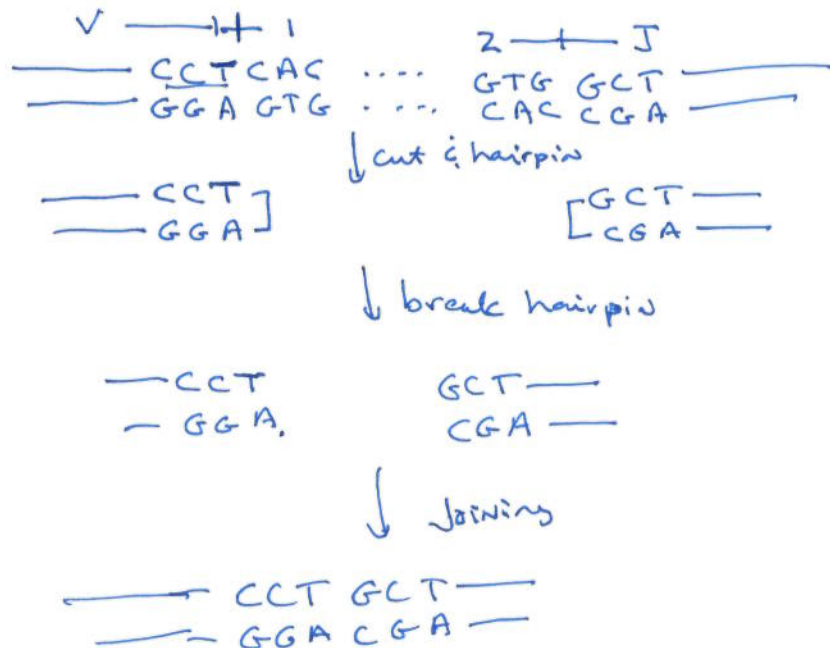 V 1 2 J
CCTCAC .... GTG GCT
GGA GTG .... CAC CGA
cut & hairpin
CCT GCT
GGA CGA
break hairpin
CCT GCT
GGA. CGA
Joining
CCT GCT
GGA CGA